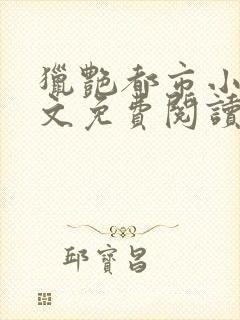 獵艷都市小
文免費閱讀
邱寶昌